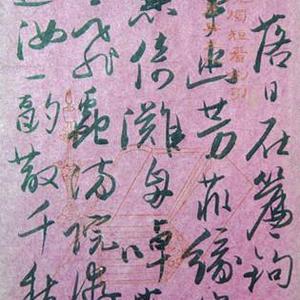 落日在簾鉤
幽芳菲緣
倚灘舟啅
飛蟲滿院遊
造汝一酌散千愁
燭短看劍引